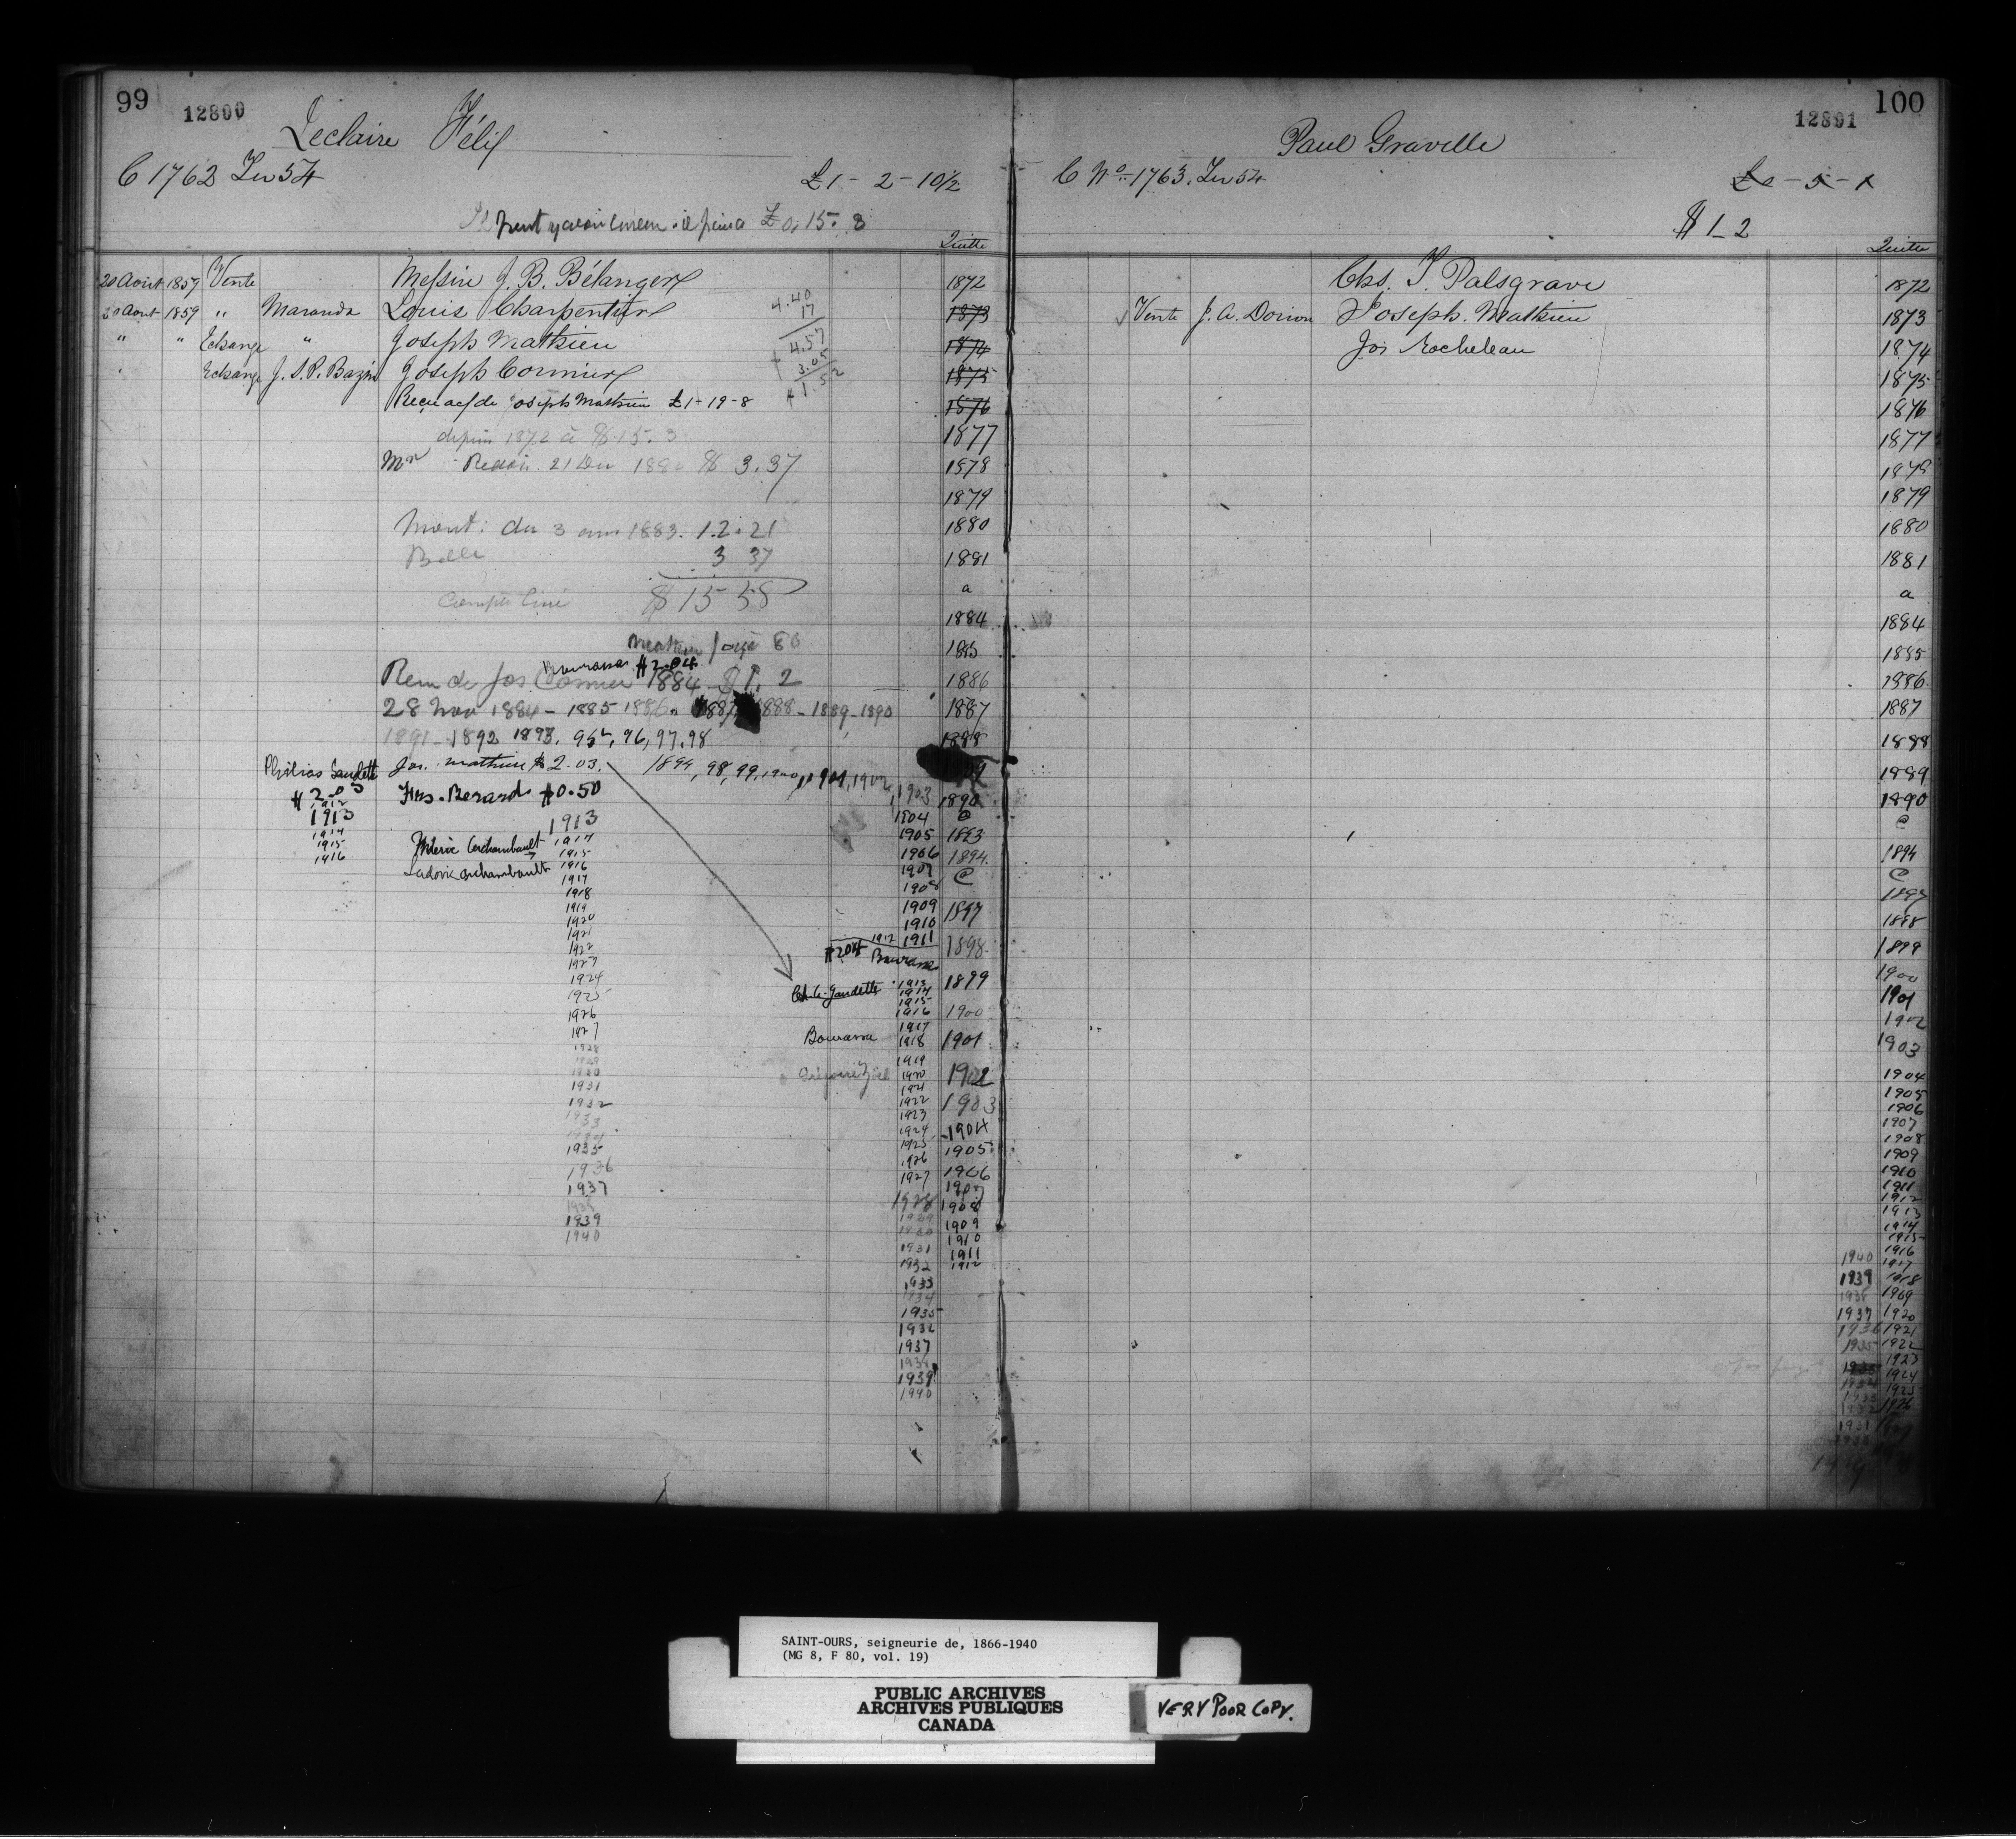 99
12800
Leclaire Félix
C 1762 Ter 54
£1 - 2 - 10½
£0. 15. 8
Quitte
20 Août 1857 Vente Messire J. B. Bélanger 1872
20 Aout 1859 " Maranda Louis Charpentier 1873
4.40
17
4.57
3.05
$1.52
" " Echange " Joseph Mathieu 1874
Echange J. S. R. Bazin Joseph Cormier 1875
Reçu de Joseph Mathieu £1-19-8 1876
depuis 1872 à 1877
21 Dec 1880 $ 3.37 1878
1879
Mont: du 3 1883. 12.21 1880
Balle 3 37 1881
a
$15 58
1884
1885
Bourassa $2.04
Recu de Jos Cormier 1884 - $1. 2 1886
28 Nov 1884 - 1885 1886. 1887 1888 - 1889 - 1890 1887
1891 - 1892 1893. 95, 96, 97, 98 1888
Philias Gaudette Jos. Mathieu $2.03. 1894, 98, 99, 1900, 1901, 1902
$2.03 Frs. Berard $0.50 1903 1890
1912
1913 1913 1904 @
1914 Archambault 1914 1905 1893
1915 1915 1906 1894
1916 Ludovic Archambault 1916 1907 @
1917 1908
1918
1919 1909 1897
1920 1910
1921 1912 1911
1922 $204 Bourassa 1898
1923
1924 Gaudette 1913 1899
1914
1925 1915
1926 1916 1900
1927 1917
1928 Bourassa 1918 1901
1929 1919
1930 1920 1902
1931 1921
1932 1922 1903
1933 1923
1934 1924 1904
1935 1925 1905
1936 1926 1906
1937 1927 1907
1938 1928 1908
1939 1929 1909
1940 1930 1910
1931 1911
1932 1912
1933
1934
1935
1932
1937
1938
1939
1940
12801
100
Paul Graville
C No 1763. Ter 54
$1_2
Quitte
Chs. T. Palsgrave 1872
Vente J. A. Dorion Joseph Mathieu 1873
Jos Rocheleau 1874
1875
1876
1877
1878
1879
1880
1881
a
1884
1885
1886
1887
1888
1889
1890
@
1894
@
1897
1898
1899
1900
1901
1902
1903
1904
1905
1906
1907
1908
1909
1910
1911
1912
1913
1914
1915
1916
1940 1917
1939 1918
1938 1919
1937 1920
1936 1921
1935 1922
1923
1924
1934 1925
1926
1931
SAINT-OURS, seigneurie de, 1866-1940
(MG 8, F 80, vol. 19)
PUBLIC ARCHIVES
ARCHIVES PUBLIQUES
CANADA
VERY POOR COPY.